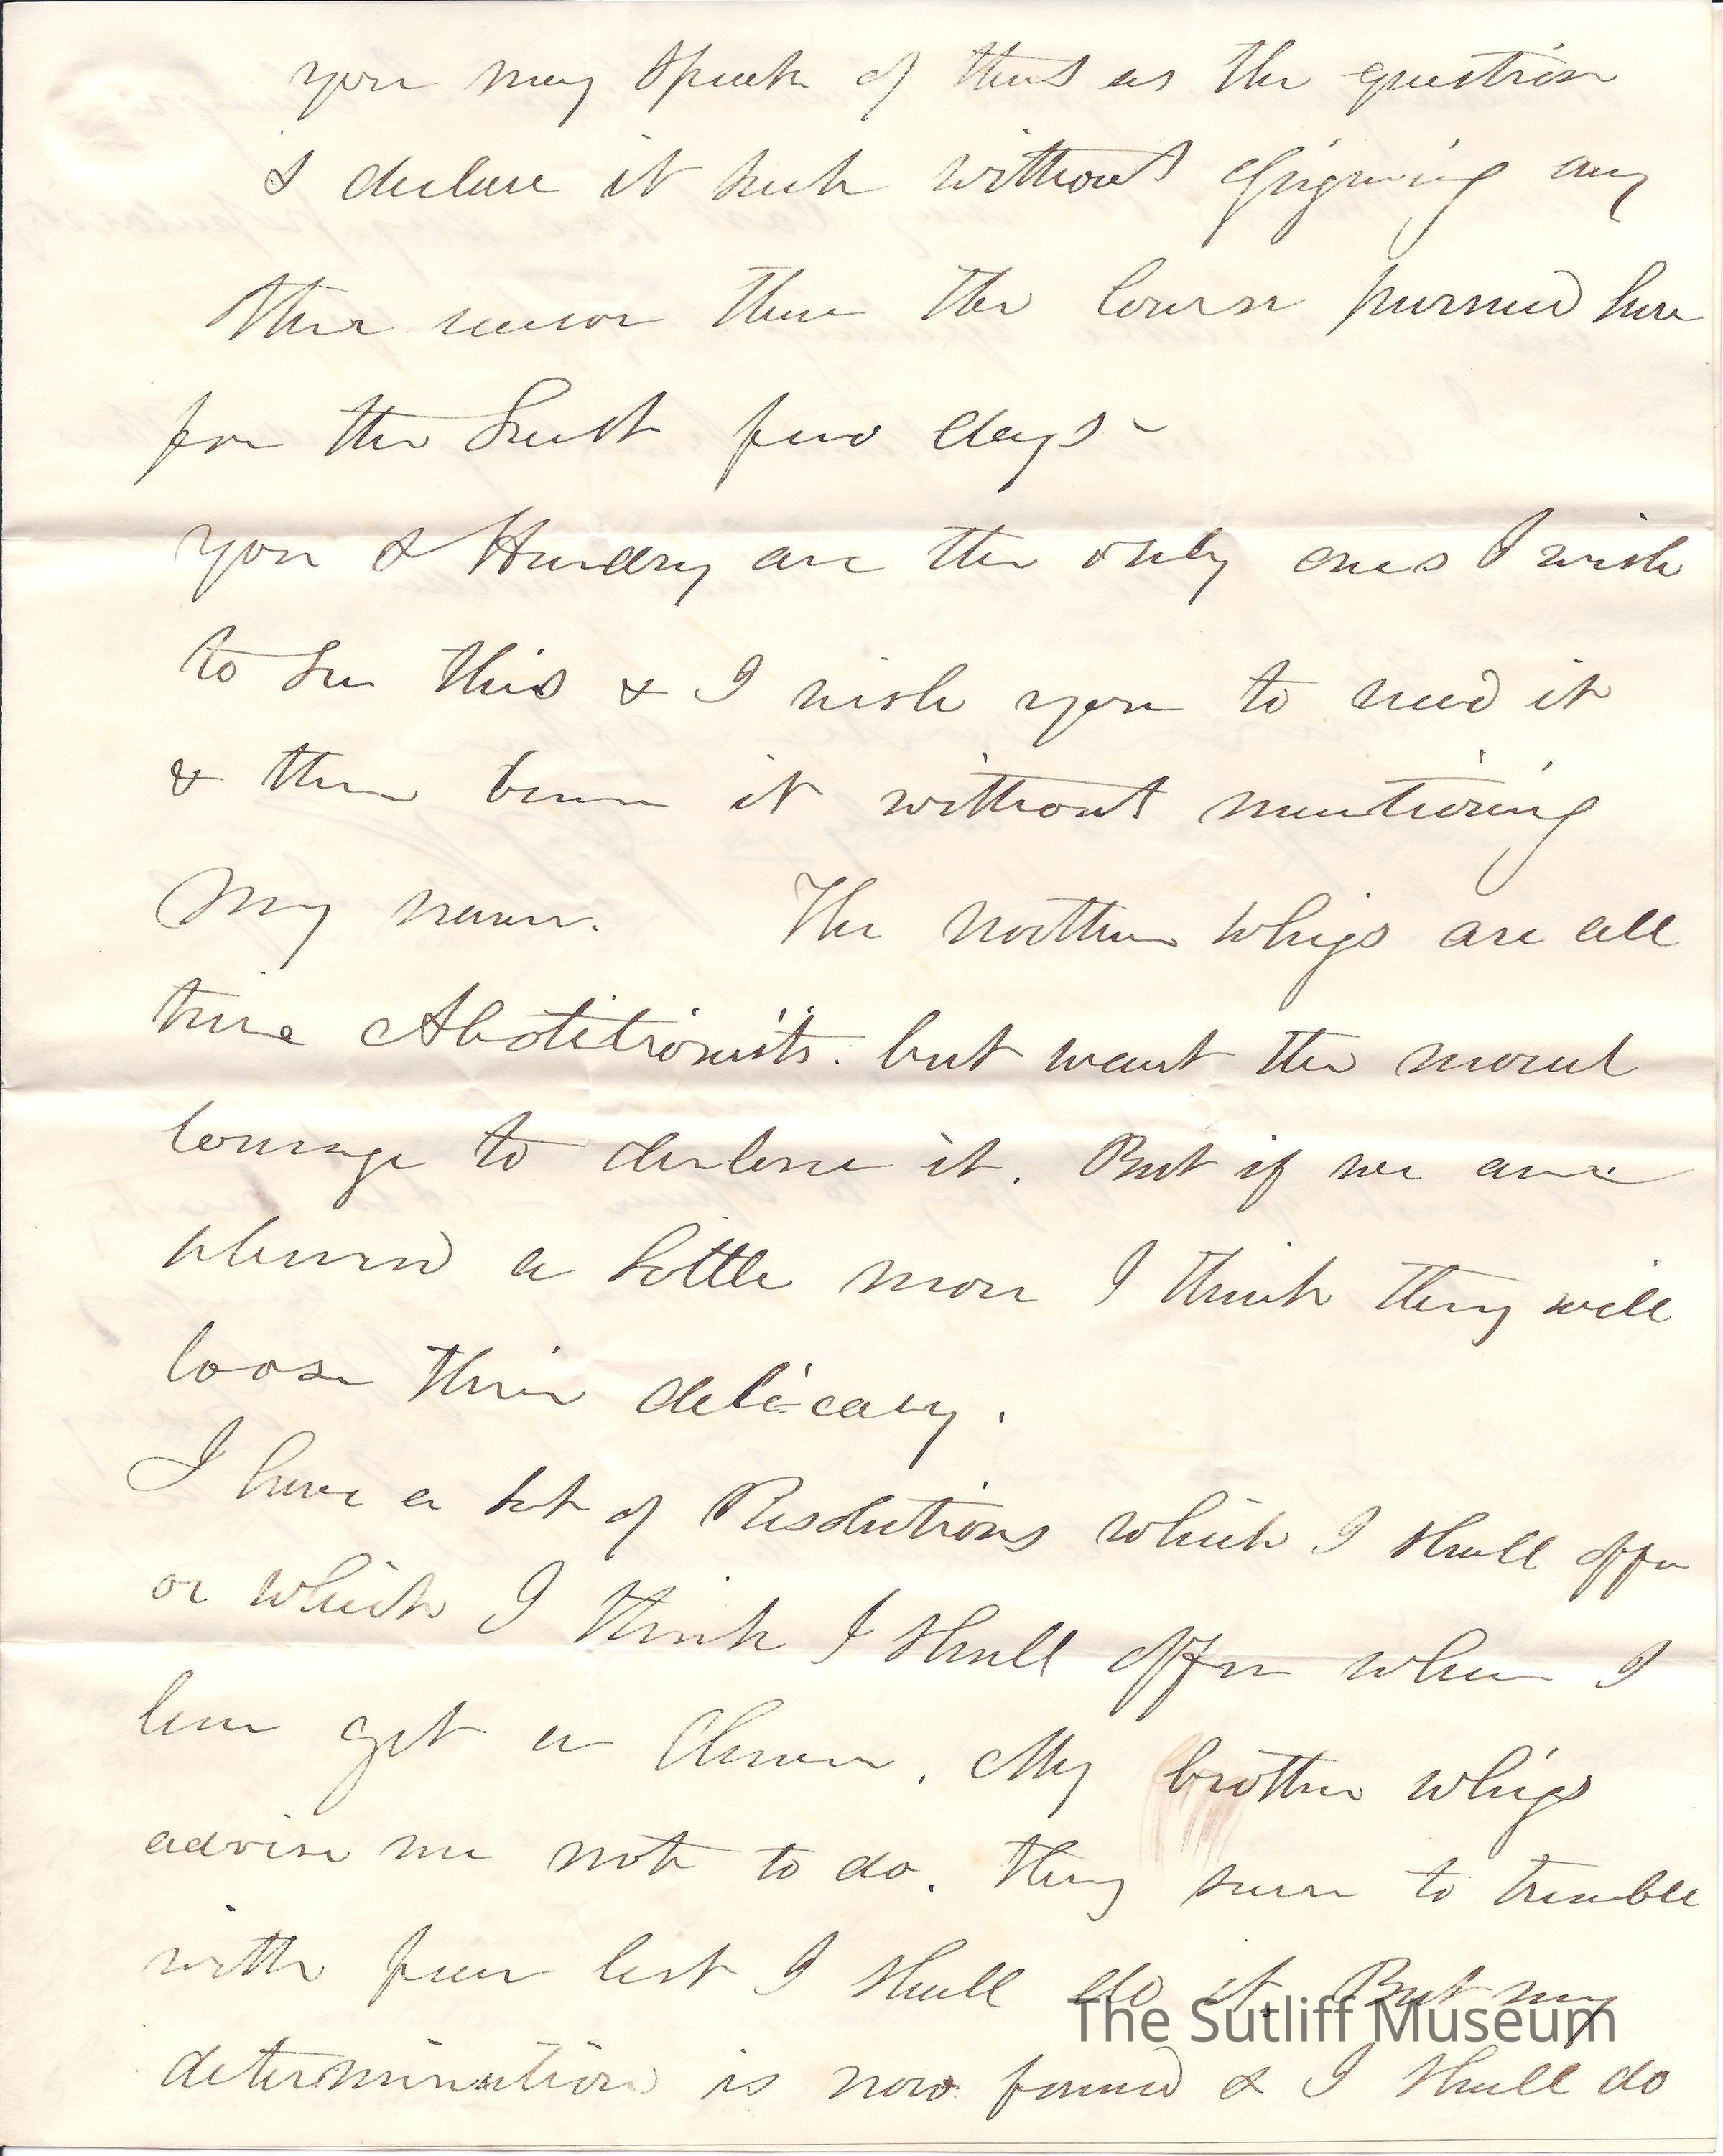 you may speak of this as the question
I declare it such without assigning any
other reason than the course pursued here
for the last few days-
you & Hendry are the only ones I wish
to see this & I wish you to read it
& then burn it without mentioning
my name. The northern Whigs are all
true Abolitionists. but want the moral
courage to declare it. But if we are
abused a little more I think they will
loose their delicacy.
I have a set of Resolutions which I shall offer
or which I think I shall offer when I
can get a chance. My brother Whigs
advise me not to do. they seem to tremble
with fear lest I shall do it. But my
The Sutliff Museum
determination is now formed & I shall do